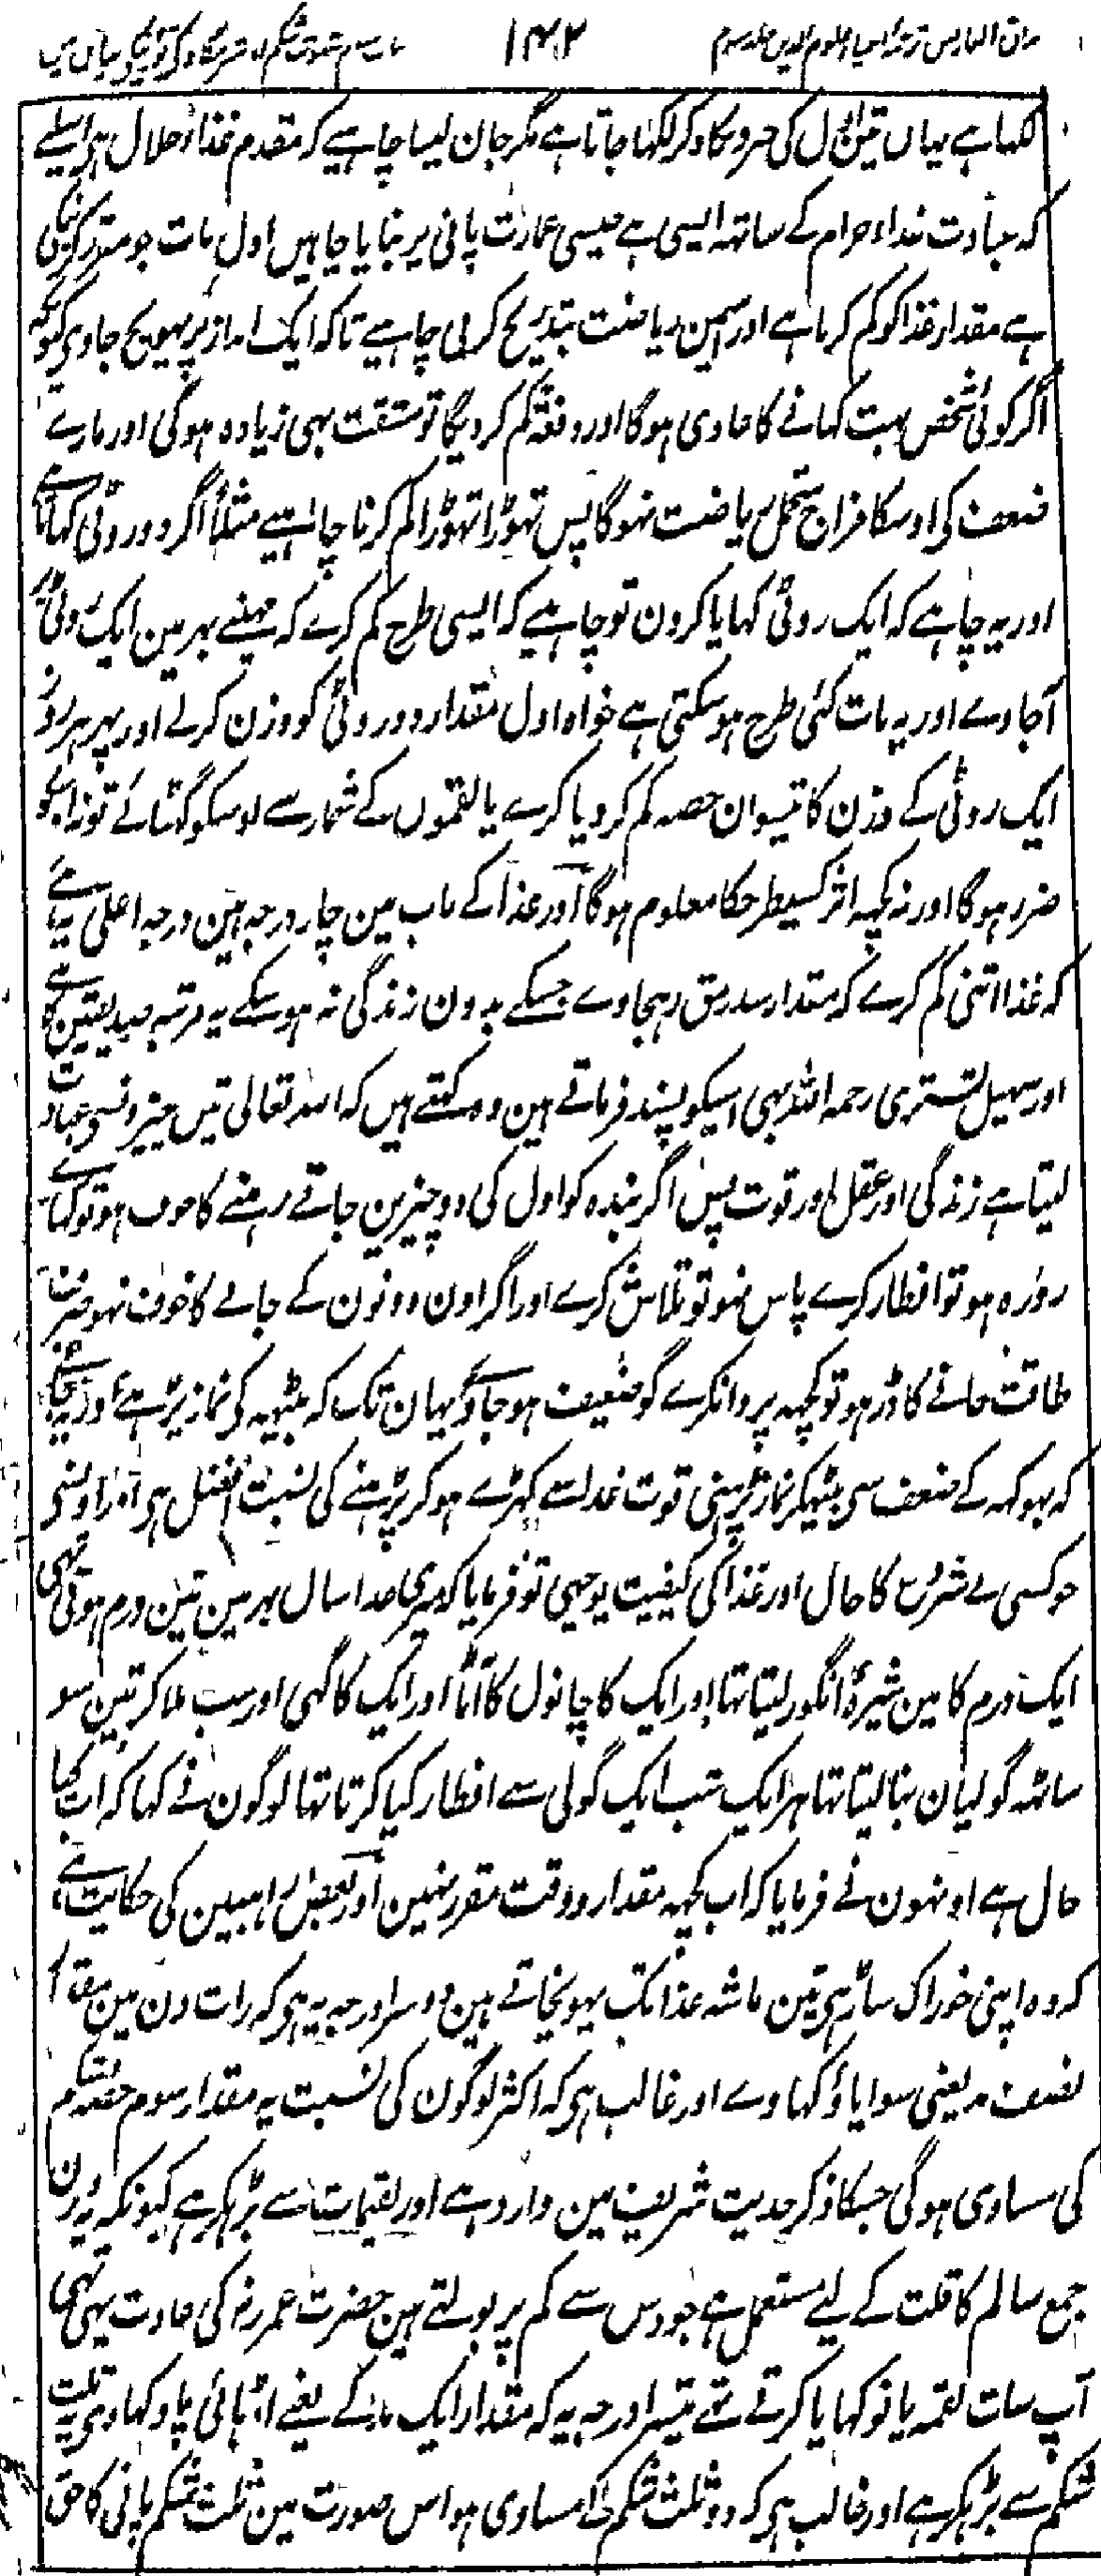 مذاق العارفین ترجمہ احیاء علوم الدین جلد سوم ۱۴۲
لکہا ہے یہاں تین کی حدود کا ذکر لکہا جاتا ہے مگر جان لینا چاہیے کہ مقدم غذاء حلال ہی اسلیے
کہ عبادت غذاء حرام کے ساتہہ ایسی ہے جیسی عمارت پانی پر بنایا چاہیں اول بات جو
ہے مقدار غذا کو کم کرنا ہے اور اسمین ریاضت بتدریج کرنی چاہیے تاکہ ایک انداز پر پہونچ جاوی کیونکہ
اگر کوئی شخص بہت کہانے کا عادی ہوگا اور دفعۃً کم کردیگا تو مشقت بہی زیادہ ہوگی اور مارے
ضعف کی اوسکا مزاج متحمل ریاضت نہوگا پس تہوڑا تہوڑا کم کرنا چاہیے مثلاً اگر دو روٹی کہاتا ہے
اور یہ چاہے کہ ایک روٹی کہایا کرون تو چاہیے کہ ایسی طرح کم کرے کہ مہینے بہر مین ایک روٹی پر
آجاوے اور یہ بات کئی طرح ہوسکتی ہے خواہ اول مقدار دو روٹی کو وزن کرلے اور پہر ہر روز
ایک روٹی کے وزن کا تیسوان حصہ کم کردیا کرے یا لقموں کے شمار سے اوسکو گہٹائے تو نہ اسکو
ضرر ہوگا اور نہ کچہہ اثر کسیطرحکا معلوم ہوگا اور غذا کے باب مین چار درجہ ہین درجہ اعلی یہ ہے
کہ غذا اتنی کم کرے کہ مقدار سدرمق رہجاوے جسکے بدون زندگی نہ ہوسکے یہ مرتبہ صدیقین کا ہے
اور سہیل تستری رحمہ اللہ بہی اسیکو پسند فرماتے ہین وہ کہتے ہیں کہ اللہ تعالی تین چیزونسی عبادت
لیتا ہے زندگی اور عقل اور قوت پس اگر بندہ کو اول کی دو چیزین جاتے رہنے کا خوف ہو تو کہاے
روزہ ہو تو افطار کرے پاس نہو تو تلاش کرے اور اگر اون دونون کے جانے کا خوف نہو
طاقت جانے کا ڈر ہو تو کچہہ پروا نکرے گو ضعیف ہوجاوے یہان تک کہ بیٹہہ کر نماز پڑہے اور
کہ بہوکہہ کے ضعف سی بیٹہکر نماز پڑہنی قوت غذا سے کہڑے ہوکر پڑہنے کی نسبت افضل ہی اور اونسی
جو کسی نے شروع کا حال اور غذا کی کیفیت پوچہی تو فرمایا کہ میری غذا سال بہر مین تین درم ہوتی تہی
ایک درم کا مین شیرۂ انگور لیتا تہا اور ایک کا چانول کا آٹا اور ایک کا گہی اور سب ملا کر تین سو
ساٹہہ گولیان بنا لیتا تہا ہر ایک شب ایک گولی سے افطار کیا کرتا تہا لوگون نے کہا کہ اب کیا
حال ہے اونہون نے فرمایا کہ اب کچہہ مقدار و وقت مقرر نہین اور بعض راہبین کی حکایت ہے
کہ وہ اپنی خوراک ساڑہی تین ماشہ غذا تک پہونچاتے ہین دوسرا درجہ یہ ہی کہ رات دن مین مقدار
نصف مد یعنی سوا پاؤ کہاوے اور غالب ہی کہ اکثر لوگون کی نسبت یہ مقدار سوم حصہ شکم
کی مساوی ہوگی جسکا ذکر حدیث شریف مین وارد ہے اور لقیمات سے بڑہکر ہے کیونکہ یہ وزن
جمع سالم کا قلت کے لیے مستعمل ہے جو دس سے کم پر بولتے ہین حضرت عمر رض کی عادت یہی تہی
آپ سات لقمہ یا نو کہایا کرتے تہے تیسرا درجہ یہ کہ مقدار ایک مد کے یعنے اڑہائی پاو کہاوی یہ ثلث
شکم سے بڑہکر ہے اور غالب ہی کہ دو ثلث شکم کے مساوی ہو اس صورت مین ثلث شکم پانی کا حق